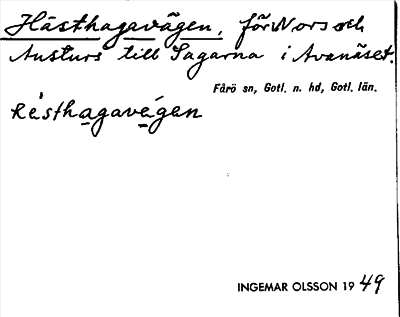 Hästhagavägen, för Nors och
Austurs till Sagarna i Avanäset.
Fårö sn, Gotl. n. hd, Gotl. län.
hésthagavégen
INGEMAR OLSSON 19 49